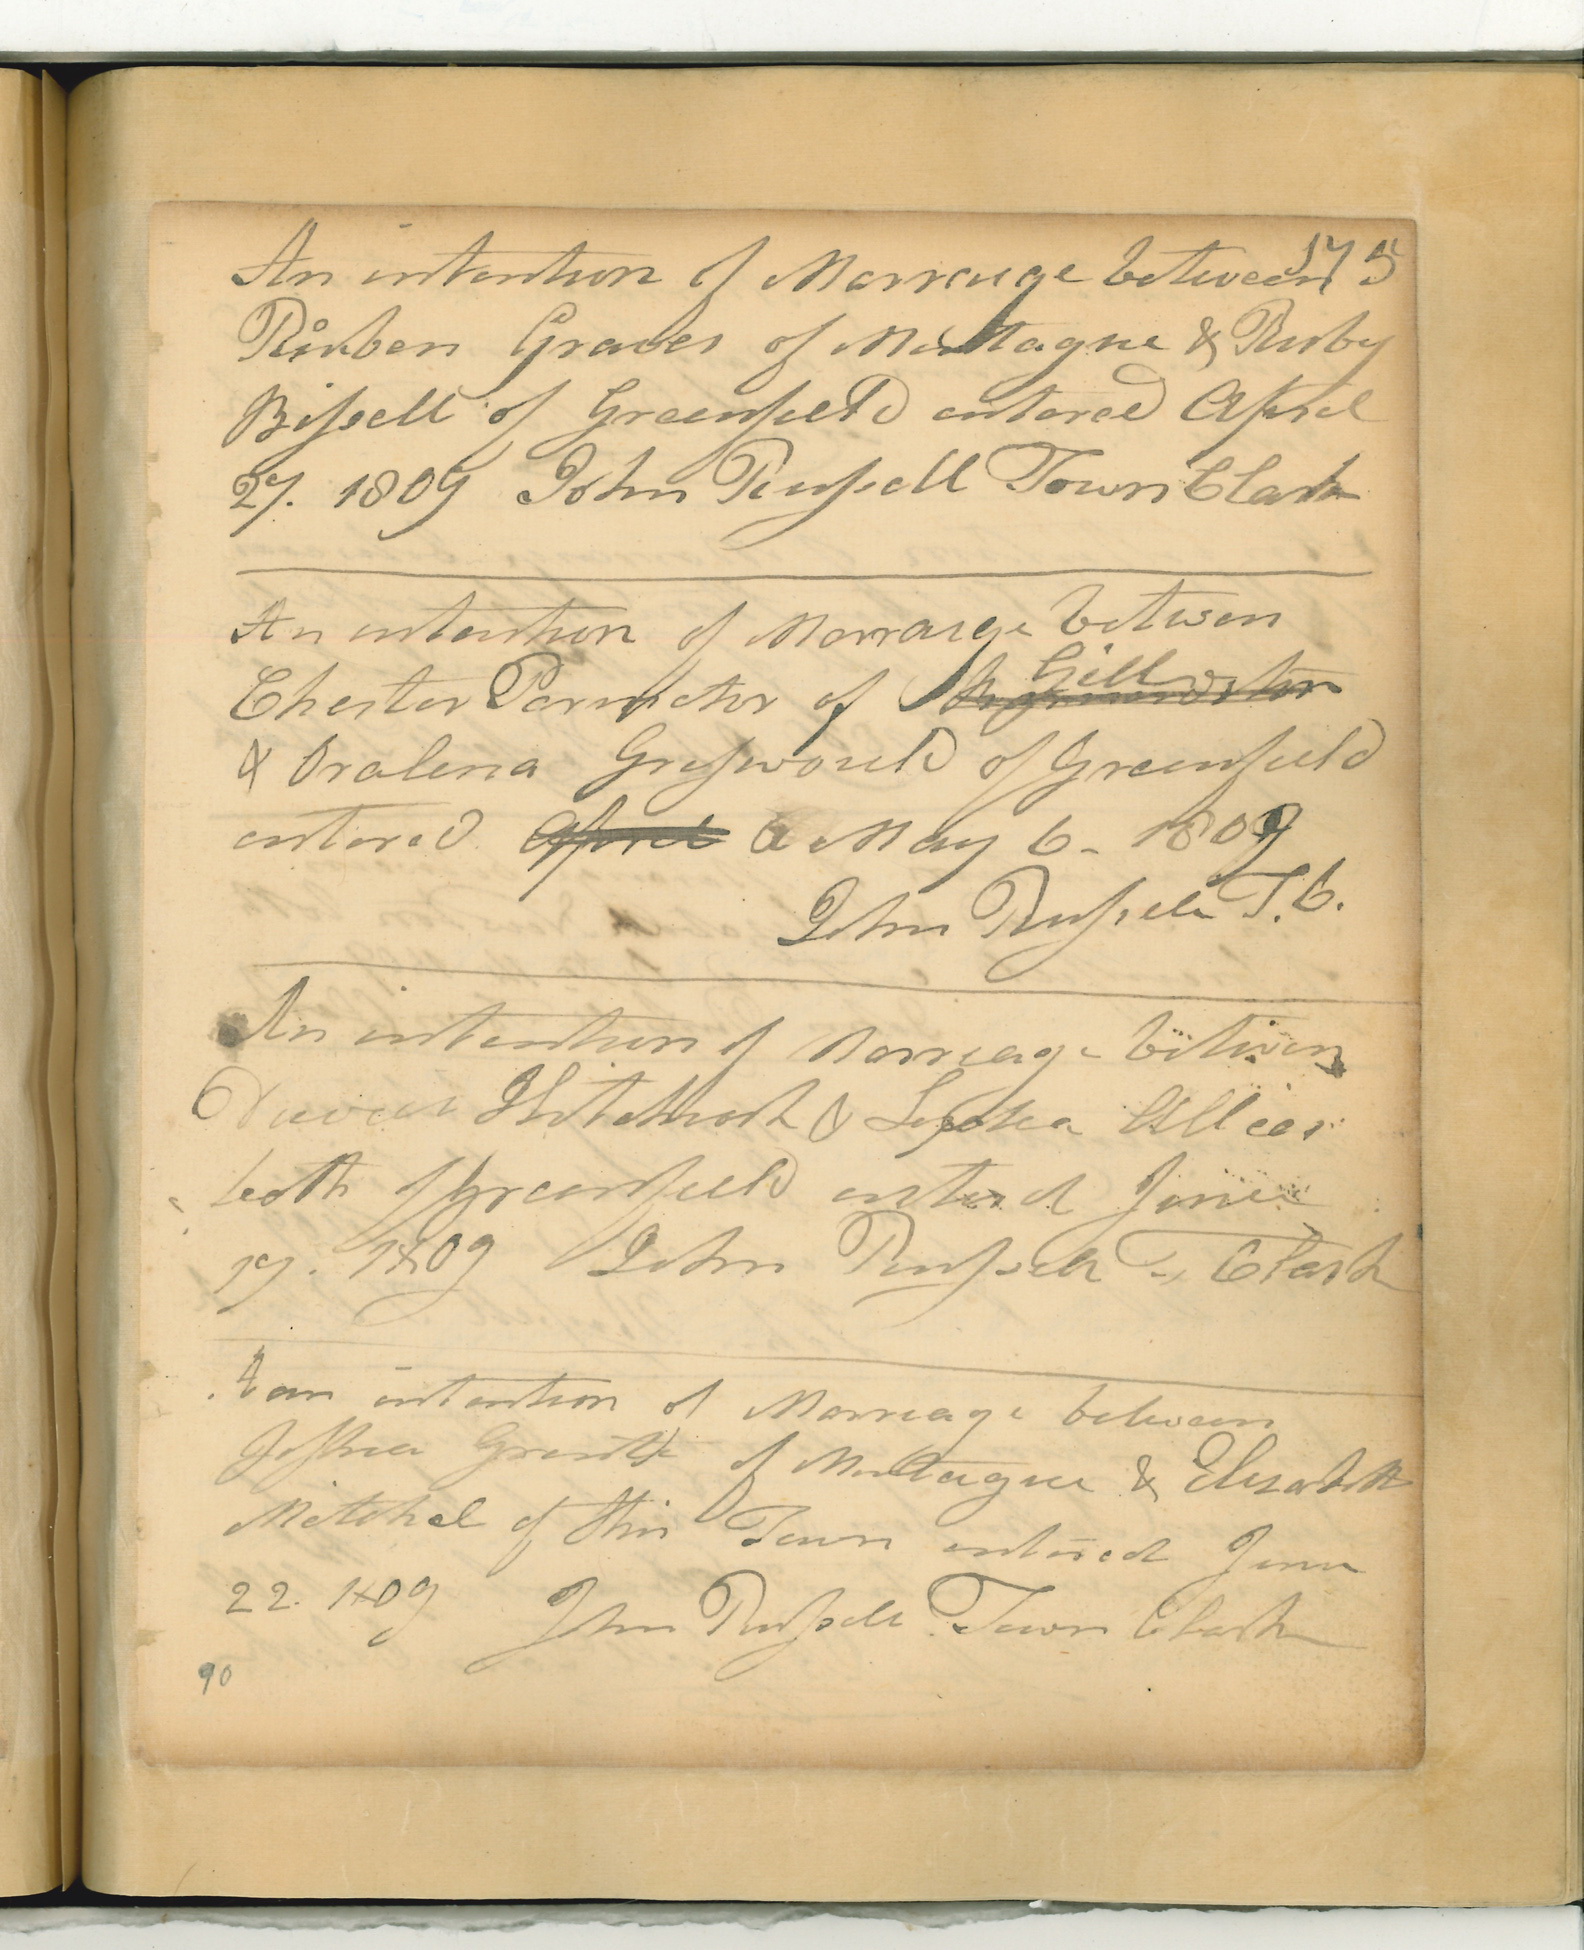 175
An intention of Marrauge between
Reuben Graves of Montague & Ruby
Bissell of Greenfield entered April
27. 1809 John Russell Town Clark
An intention of Marraige between
Chester Parmeter of Gill
& Oralena Grisswould of Greenfield
entered April May 6 - 1809
John Russell T. C.
An intention of Marreage between
Hitchcock & Allen
both of Greenfield enterd June
17. 1809 John Russell T. Clark
an intention of Marreage between
Joshua of Montague & Elizabeth
Mitchel of this Town entered June
22. 1809 John Russell Town Clark
90